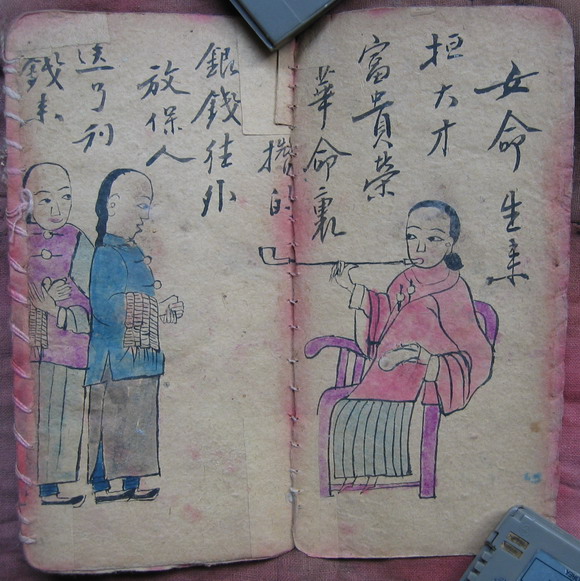 女命生来
担大才
富貴榮
華命裏
攢的
銀錢往外
放保人
送了利
錢